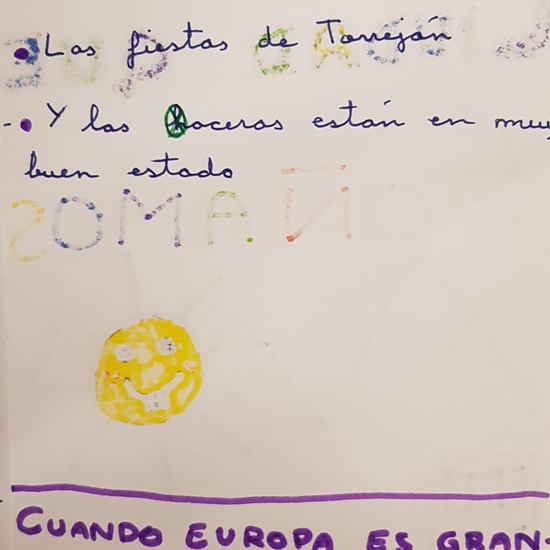 • Las fiestas de Torrejón
-• Y las aceras están en muy
buen estado
SOMAÑ
CUANDO EUROPA ES GRAN-